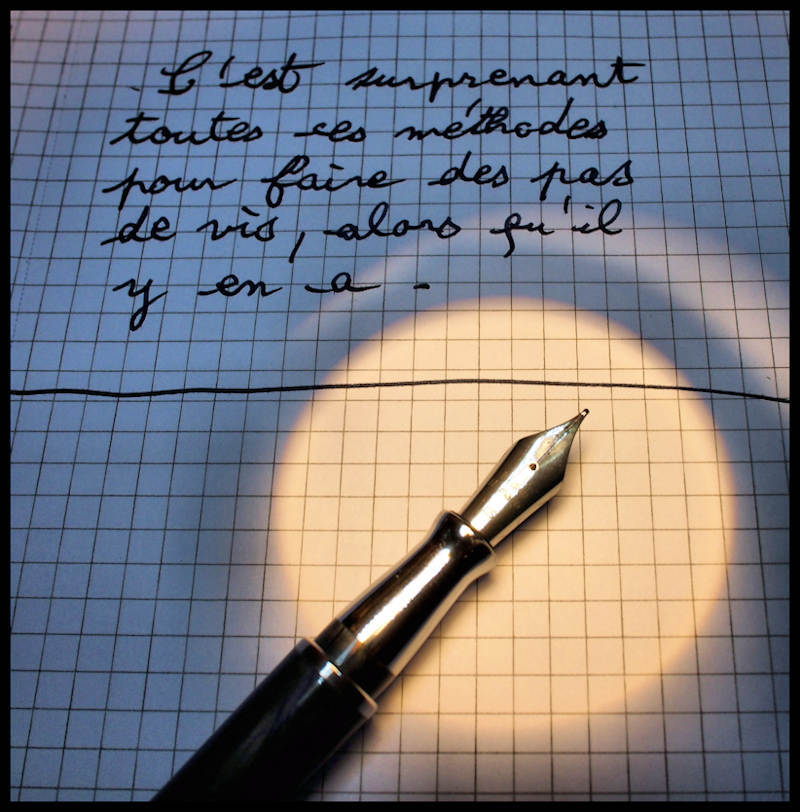 C'est surprenant
toutes ces méthodes
pour faire des pas
de vis, alors qu'il
y en a .